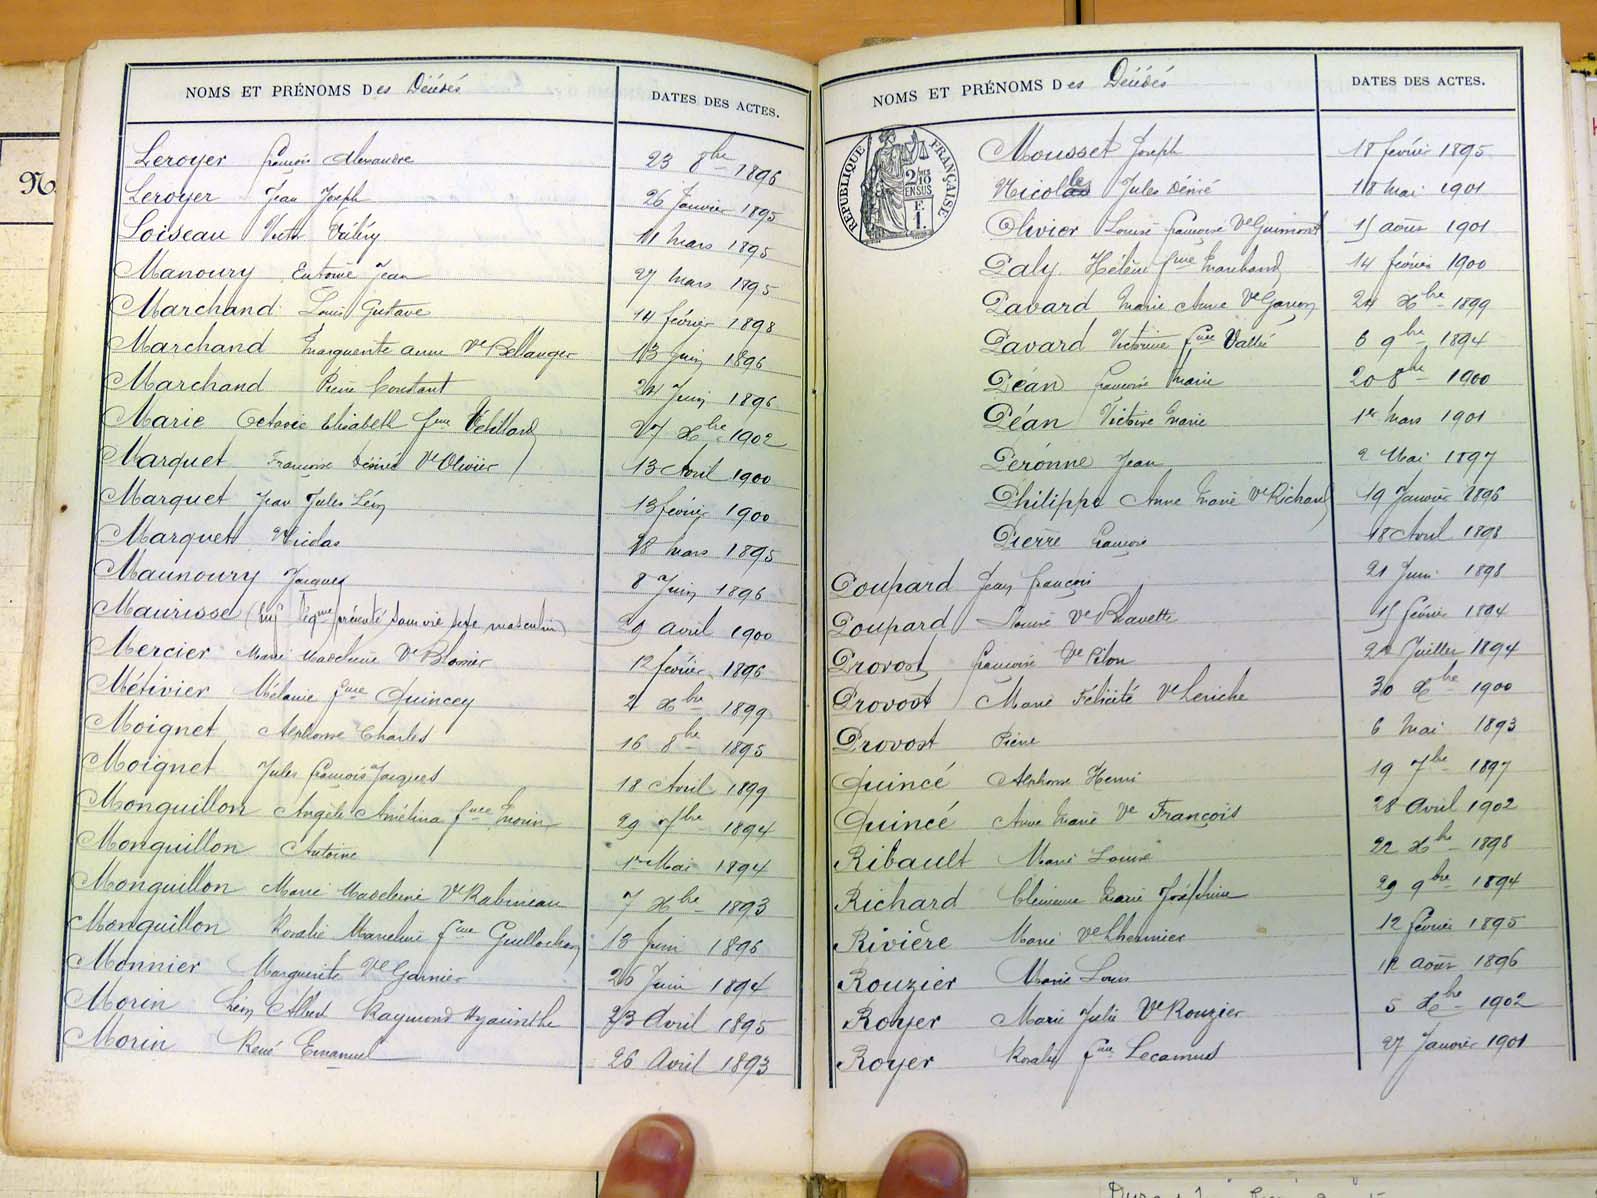 NOMS ET PRÉNOMS Des Décédés
DATES DES ACTES.
Leroyer François Alexandre 23 8bre 1896
Leroyer Jean Joseph 26 Janvier 1895
Loiseau Victor Valéry 11 Mars 1895
Manoury Antoine Jean 27 Mars 1895
Marchand Louis Gustave 14 février 1898
Marchand Marguerite Anne Ve Bellanger 13 Juin 1896
Marchand Pierre Constant 24 Juin 1896
Marie Octavie Elisabeth fme Vetillard 27 Xbre 1902
Marquet Françoise Désirée Ve Olivier 13 Avril 1900
Marquet Jean Jules Léon 13 février 1900
Marquet Nicolas 18 Mars 1895
Maunoury Jacques 8 Juin 1896
Maurisse présenté sans vie sexe masculin) 29 Avril 1900
Mercier Marie Madeleine Ve 12 février 1896
Métivier Mélanie fme Quincey 2 Xbre 1899
Moignet Alphonse Charles 16 8bre 1895
Moignet Jules François Jacques 18 Avril 1899
Monguillon Angèle Amélina fme Morin 29 7bre 1894
Monguillon Antoine 1er Mai 1894
Monguillon Marie Madeleine Ve Rabineau 7 Xbre 1893
Monguillon Rosalie Marceline fme Guillochon 13 Juin 1896
Monnier Marguerite Ve Garnier 26 Juin 1894
Morin Léon Albert Raymond Hyacinthe 23 Avril 1895
Morin René Emanuel 26 Avril 1893
NOMS ET PRÉNOMS Des Décédés
DATES DES ACTES.
RÉPUBLIQUE FRANÇAISE
2/10
EN SUS
F.
1.
Mousset Joseph 18 février 1895
Nicolle Jules Désiré 18 Mai 1901
Olivier Louise Françoise Ve Guimont 15 août 1901
Paly Hélène fme Marchand 14 février 1900
Pavard Marie Anne Ve 24 Xbre 1899
Pavard Victorine fme Vallée 6 9bre 1894
Péan Françoise Marie 20 8bre 1900
Péan Victoire Marie 1er Mars 1901
Peronne Jean 2 Mai 1897
Philippe Anne Marie Ve Richard 19 Janvier 1896
Pierre François 18 Avril 1898
Poupard Jean François 21 Juin 1898
Poupard Louise Ve 15 février 1894
Provost Françoise Ve Pilon 21 Juillet 1894
Provost Marie Félicité Ve Leriche 30 Xbre 1900
Provost Pierre 6 Mai 1893
Quincé Alphonse Henri 19 7bre 1897
Quincé Anne Marie Ve François 28 Avril 1902
Ribault Marie Louise 22 Xbre 1898
Richard Clémence Marie Joséphine 29 9bre 1894
Rivière Marie Ve Lhermier 12 février 1895
Rouzier Marie Louis 12 août 1896
Royer Marie Julie Ve Rouzier 5 Xbre 1902
Royer Rosalie fme Lecamus 27 Janvier 1901